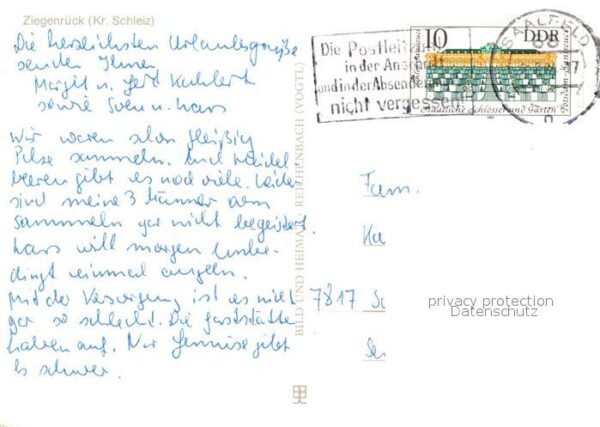 Ziegenrück (Kr. Schleiz)
Die herzlichsten Urlaubsgrüße
senden Ihnen
Margit u. Gert Kuhlert
sowie Sven u. Lars
Wir waren schon fleißig
Pilse sammeln. Auch Heidel
beeren gibt es noch viele. Leider
sind meine 3 Männer vom
sammeln gar nicht begeistert.
Lars will morgen unbe-
dingt einmal angeln.
Mit der Versorgung ist es nicht
gar so schlecht. Die Gaststätte
haben auf. Nur Gemüse gibt
es schwer.
BILD UND HEIMAT REICHENBACH (VOGTL)
Die Postleitzahl
in der Anschrift
und in der Absenderangabe
nicht vergessen!
10 DDR
Staatliche Schlösser und Gärten
Potsdam-Sanssouci
SAALFELD
68
Fam.
Ka
7817 Sc
privacy protection
Datenschutz